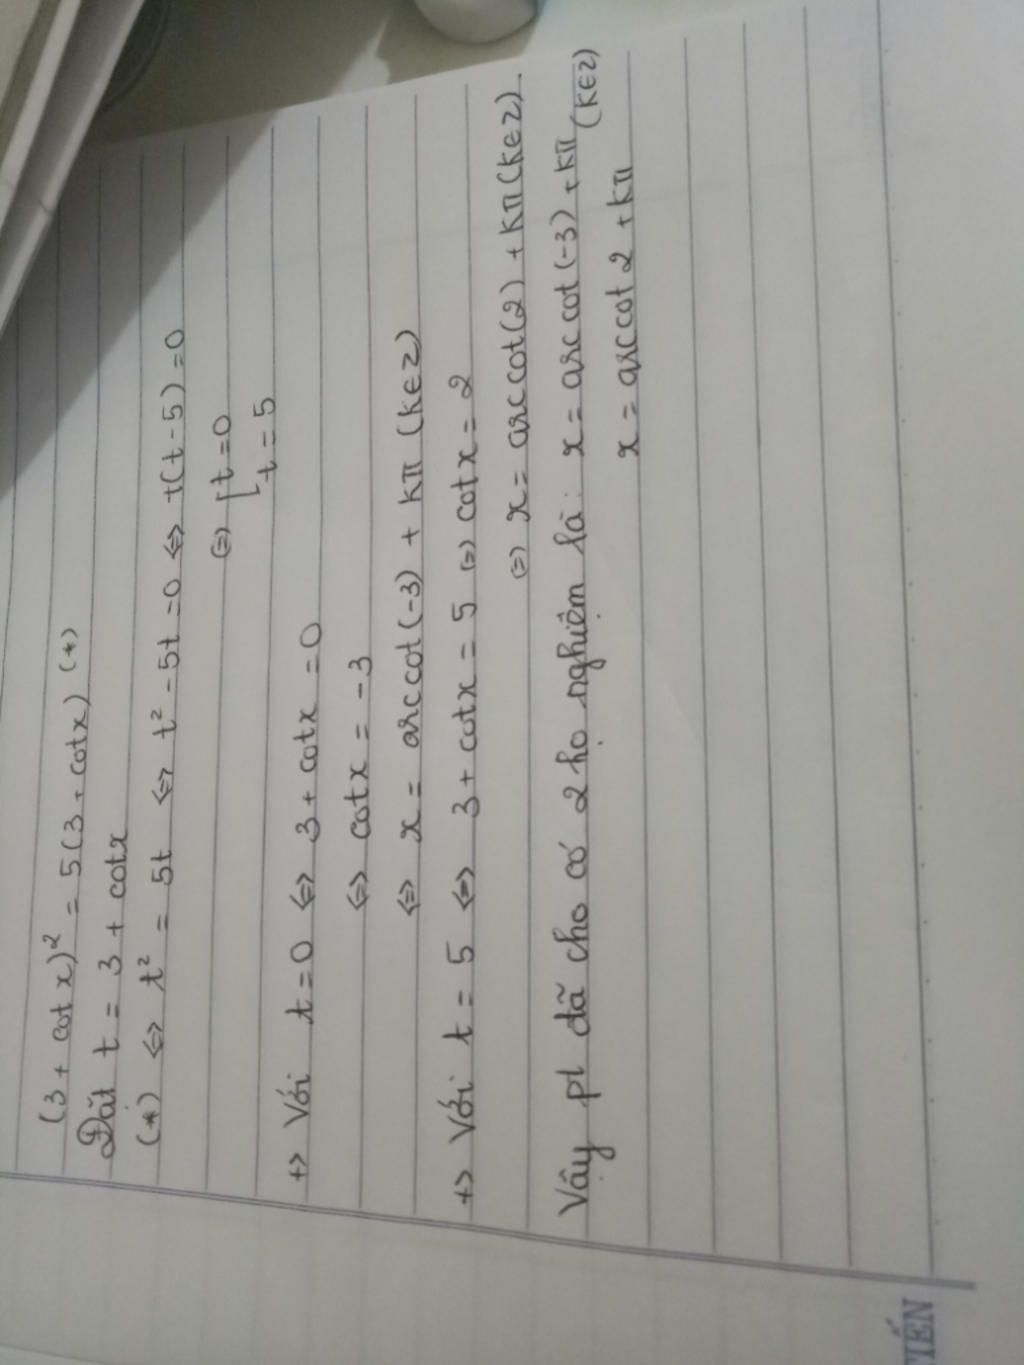 (3 + cot x)² = 5(3 + cotx) (*)
Đặt t = 3 + cotx
(*) ⇔ t² = 5t ⇔ t² - 5t = 0 ⇔ t(t - 5) = 0
⇔ [ t = 0
t = 5
+> Với t = 0 ⇔ 3 + cotx = 0
⇔ cotx = -3
⇔ x = arccot(-3) + kπ (k∈Z)
+> Với t = 5 ⇔ 3 + cotx = 5 ⇔ cotx = 2
⇔ x = arccot(2) + kπ (k∈Z).
Vậy pt đã cho có 2 họ nghiệm là: x = arccot(-3) + kπ (k∈Z)
x = arccot 2 + kπ
TIẾN